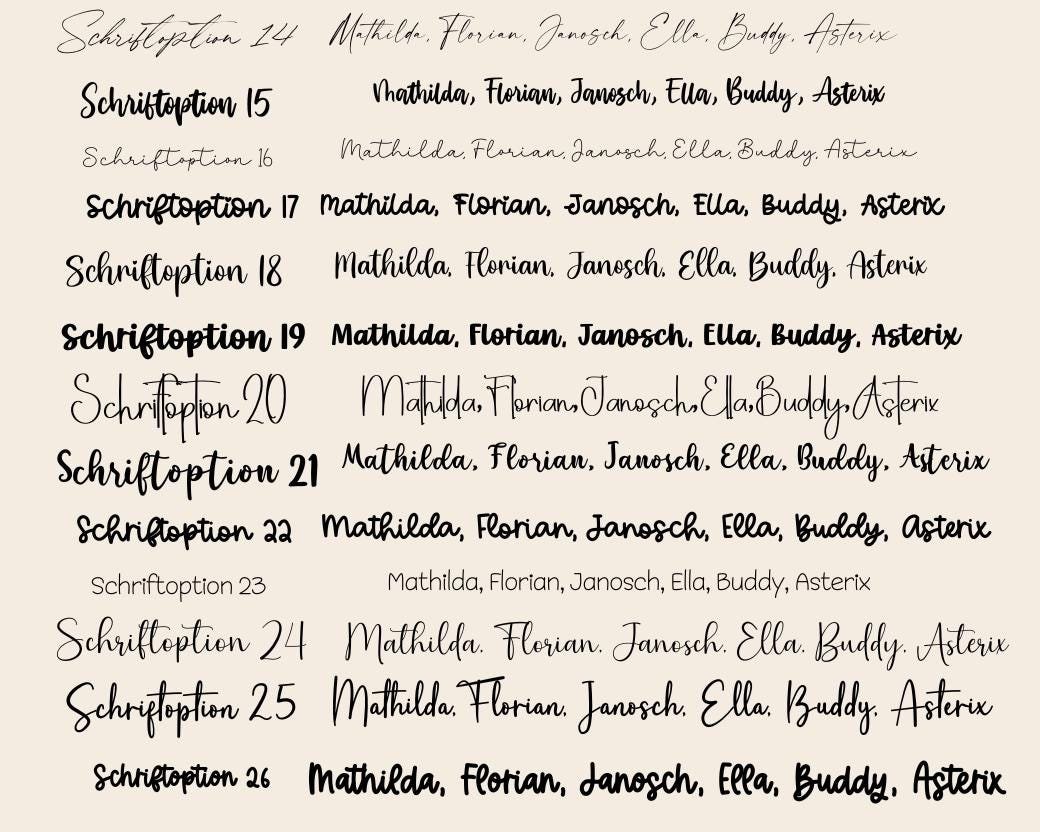 Schriftoption 14 Mathilda, Florian, Janosch, Ella, Buddy, Asterix
Schriftoption 15 Mathilda, Florian, Janosch, Ella, Buddy, Asterix
Schriftoption 16 Mathilda, Florian, Janosch, Ella, Buddy, Asterix
Schriftoption 17 Mathilda, Florian, Janosch, Ella, Buddy, Asterix
Schriftoption 18 Mathilda, Florian, Janosch, Ella, Buddy, Asterix
Schriftoption 19 Mathilda, Florian, Janosch, Ella, Buddy, Asterix
Schriftoption 20 Mathilda, Florian, Janosch, Ella, Buddy, Asterix
Schriftoption 21 Mathilda, Florian, Janosch, Ella, Buddy, Asterix
Schriftoption 22 Mathilda, Florian, Janosch, Ella, Buddy, Asterix
Schriftoption 23 Mathilda, Florian, Janosch, Ella, Buddy, Asterix
Schriftoption 24 Mathilda, Florian, Janosch, Ella, Buddy, Asterix
Schriftoption 25 Mathilda, Florian, Janosch, Ella, Buddy, Asterix
Schriftoption 26 Mathilda, Florian, Janosch, Ella, Buddy, Asterix